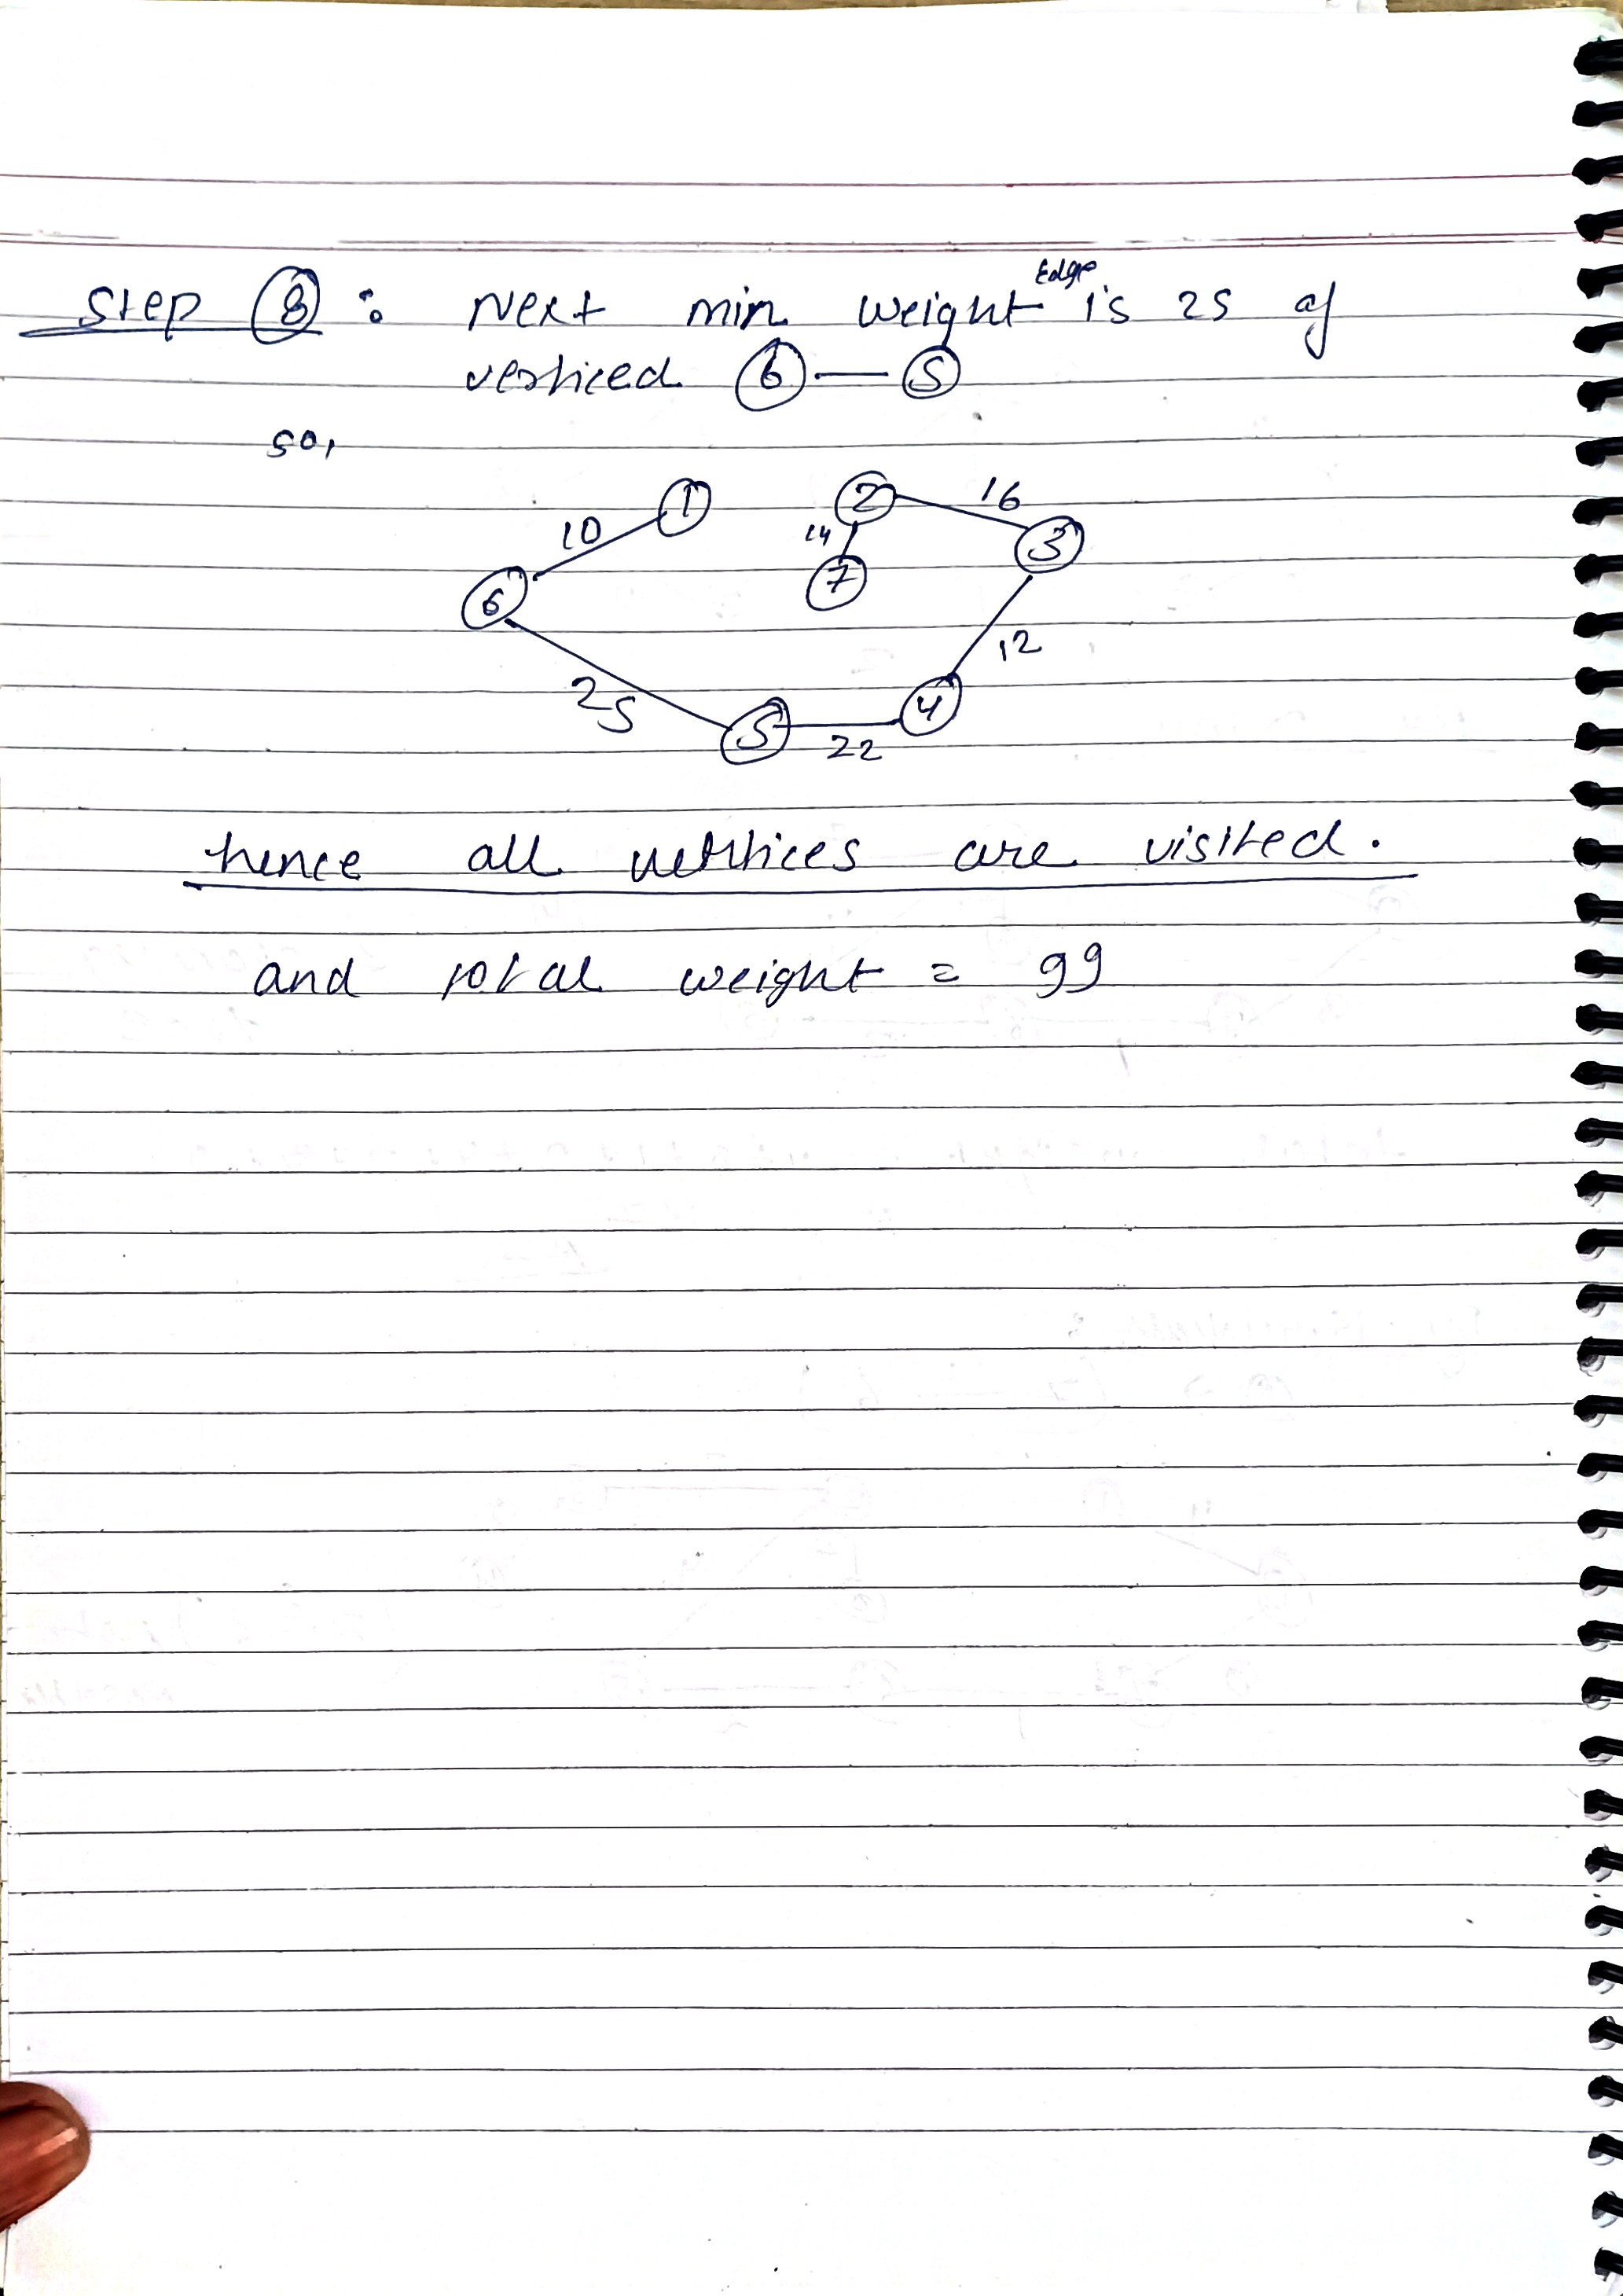 Step 8 : Next min weight Edge is 25 of
verticed 6 — 5
so,
1 2 16
10 14 3
6 7
12
25 4
5 22
hence all vertices are visited.
and total weight = 99